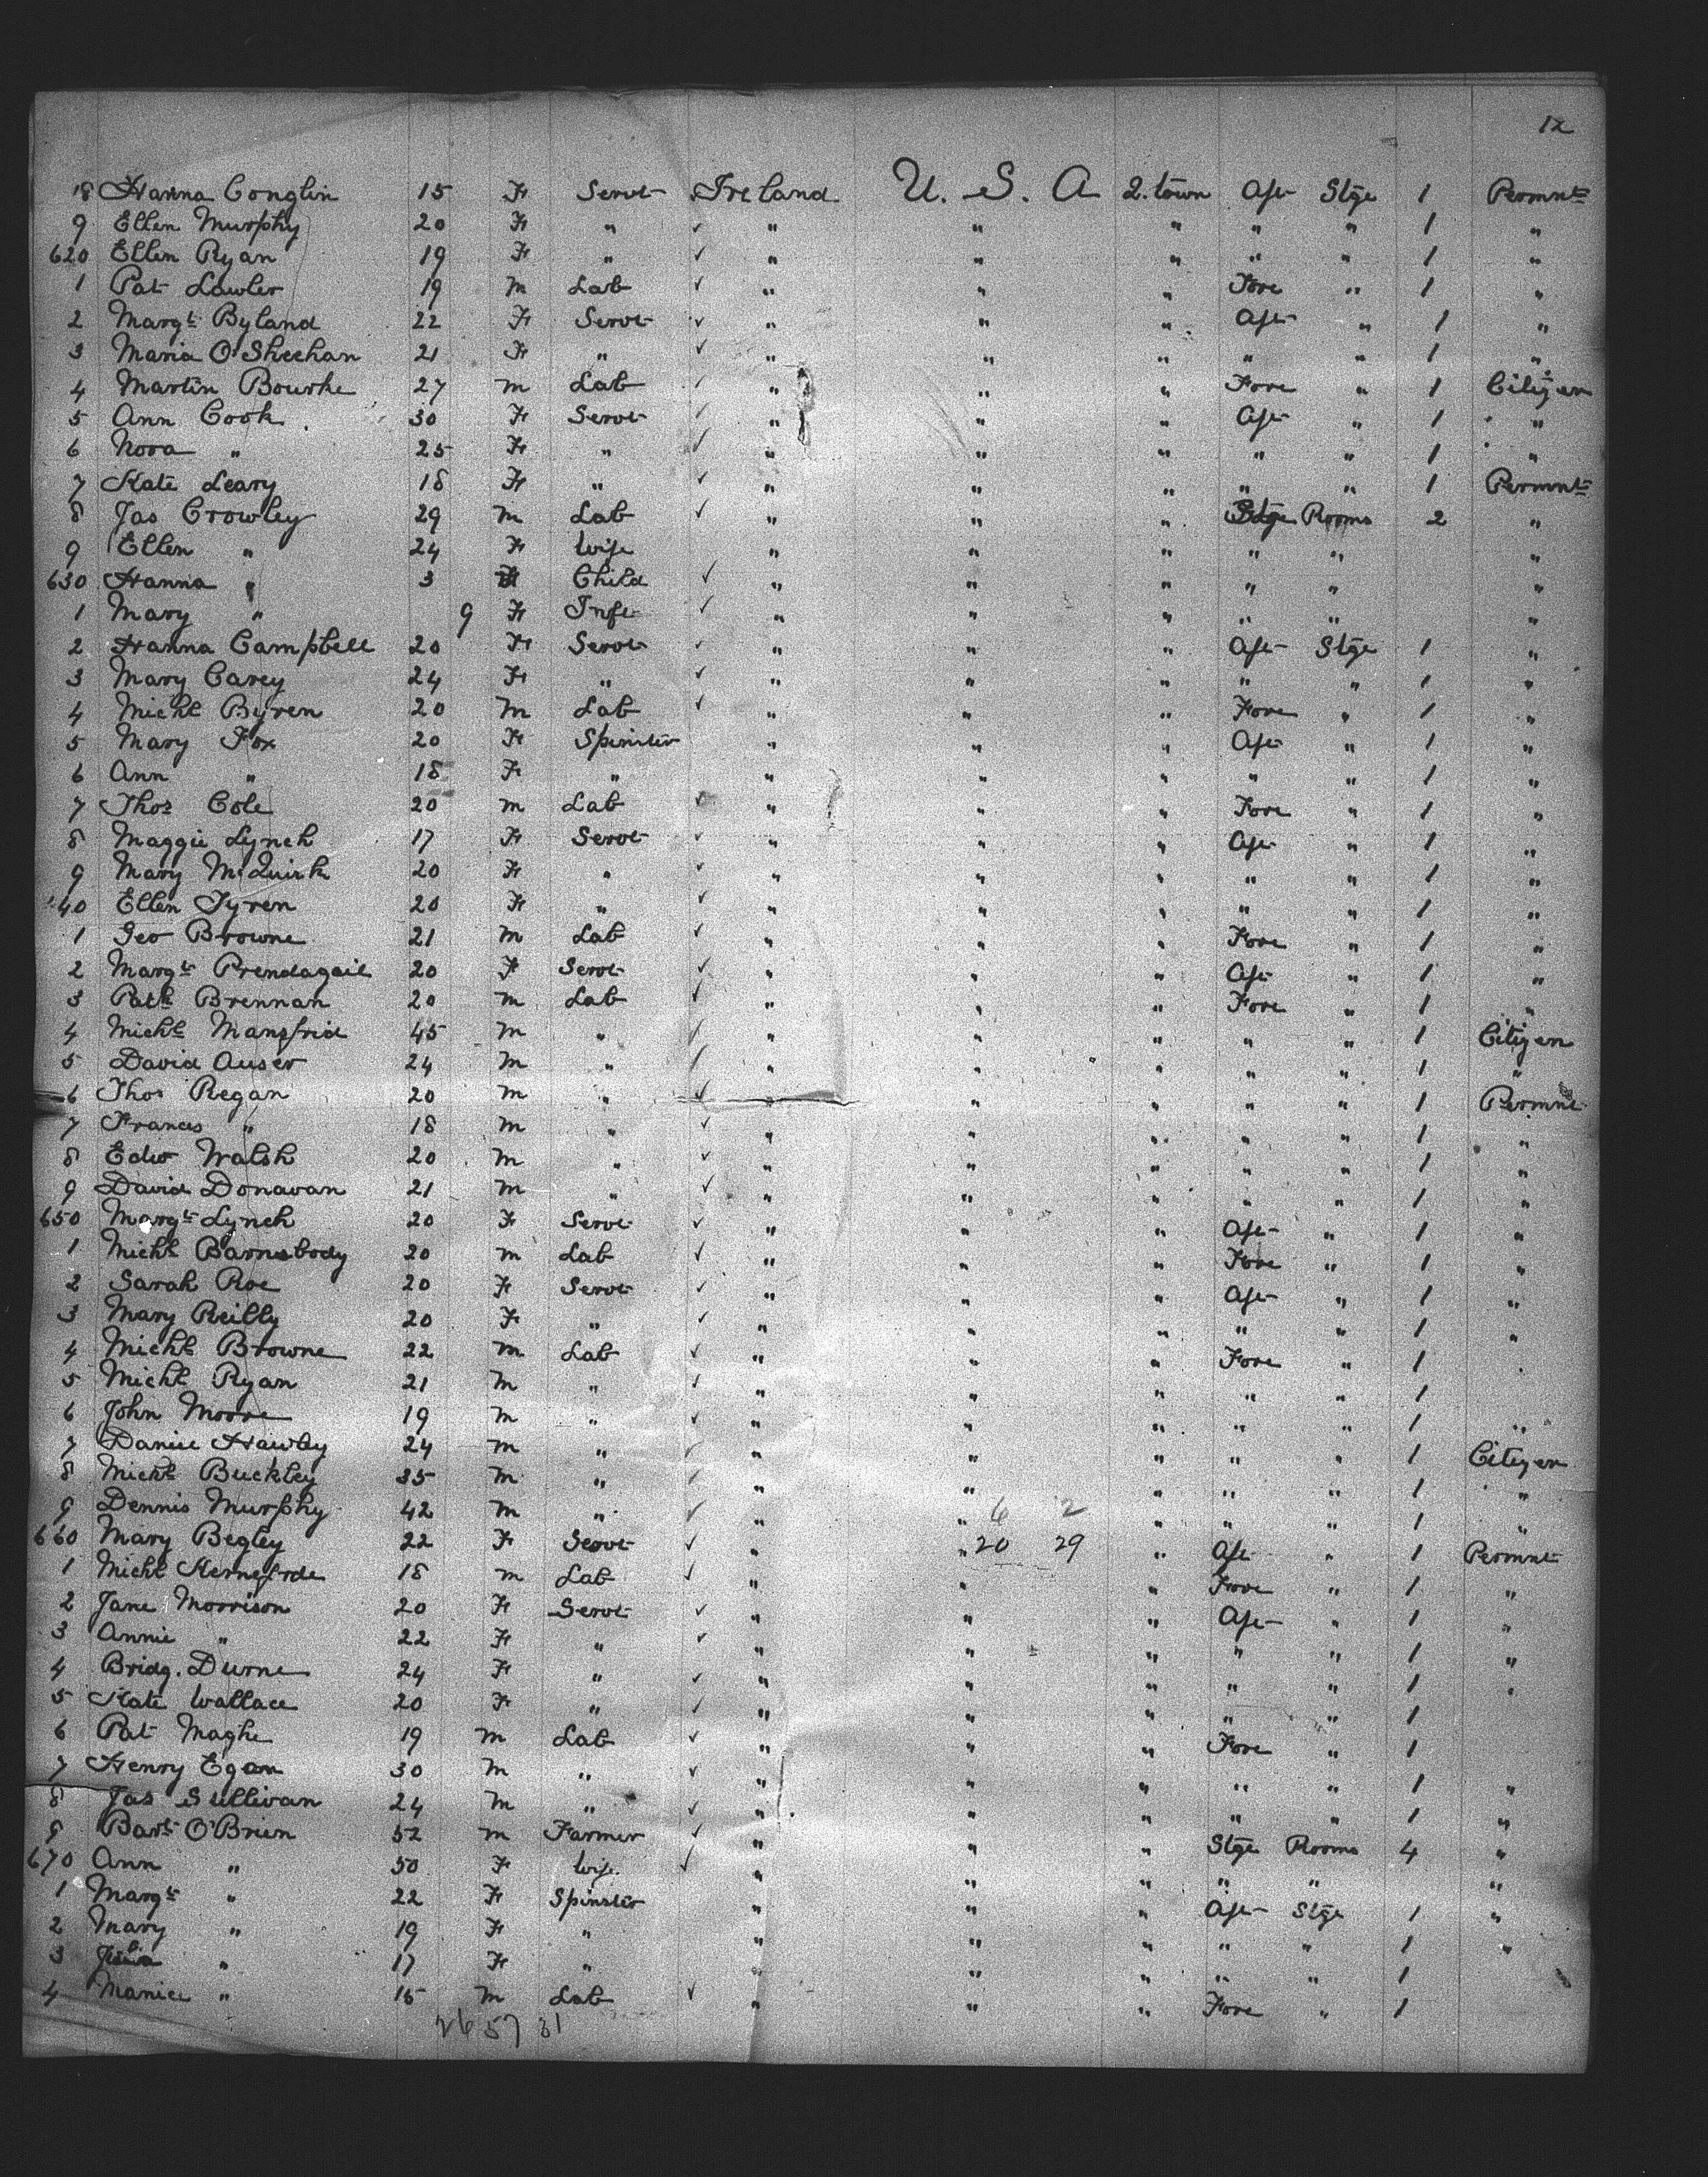 12
18 Hanna Conglin 15 F Servt Ireland U. S. A Q. town Aft Stge 1 Permnt
9 Ellen Murphy 20 F " ✓ " " " " " 1 "
620 Ellen Ryan 19 F " ✓ " " " " " 1 "
1 Pat Lawler 19 m Lab ✓ " " " Fore " 1 "
2 Margt Byland 22 F Servt ✓ " " " Aft " 1 "
3 Maria O'Sheehan 21 F " ✓ " " " " " 1 "
4 Martin Bourke 27 m Lab ✓ " " " Fore " 1 Citizen
5 Ann Cook 30 F Servt ✓ " " " Aft " 1 "
6 Nora " 25 F " ✓ " " " " " 1 "
7 Kate Leary 18 F " ✓ " " " " " 1 Permnt
8 Jas Crowley 29 m Lab ✓ " " " Stge Rooms 2 "
9 Ellen " 24 F Wife " " " " " "
630 Hanna " 3 F Child ✓ " " " " " "
1 Mary " 9 F Inft ✓ " " " " " "
2 Hanna Campbell 20 F Servt ✓ " " " Aft Stge 1 "
3 Mary Carey 24 F " ✓ " " " " " 1 "
4 Michl Byren 20 m Lab ✓ " " " Fore " 1 "
5 Mary Fox 20 F Spinster " " " Aft " 1 "
6 Ann " 18 F " " " " " " 1 "
7 Thos Cole 20 m Lab ✓ " " " Fore " 1 "
8 Maggie Lynch 17 F Servt ✓ " " " Aft " 1 "
9 Mary McQuirk 20 F " ✓ " " " " " 1 "
40 Ellen Tyren 20 F " ✓ " " " " " 1 "
1 Geo Browne 21 m Lab ✓ " " " Fore " 1 "
2 Margt Prendagail 20 F Servt ✓ " " " Aft " 1 "
3 Patk Brennan 20 m Lab ✓ " " " Fore " 1 "
4 Michl 45 m " ✓ " " " " " 1 Citizen
5 David Auser 24 m " ✓ " " " " " 1 "
6 Thos Regan 20 m " ✓ " " " " " 1 Permnt
7 Frances " 18 m " ✓ " " " " " 1 "
8 Edw Walsh 20 m " ✓ " " " " " 1 "
9 David Donavan 21 m " ✓ " " " " " 1 "
650 Margt Lynch 20 F Servt ✓ " " " Aft " 1 "
1 Michl Barnabody 20 m Lab ✓ " " " Fore " 1 "
2 Sarah Roe 20 F Servt ✓ " " " Aft " 1 "
3 Mary Reilly 20 F " ✓ " " " " " 1 "
4 Michl Browne 22 m Lab ✓ " " " Fore " 1 "
5 Michl Ryan 21 m " ✓ " " " " " 1
6 John Moore 19 m " ✓ " " " " " 1 "
7 Daniel Hawley 24 m " ✓ " " " " " 1 Citizen
8 Michl Buckley 35 m " ✓ " " " " " 1 "
9 Dennis Murphy 42 m " ✓ " " 6 2 " " " 1 "
660 Mary Begley 22 F Servt ✓ " " 20 29 " Aft " 1 Permnt
1 Michl 18 m Lab ✓ " " " Fore " 1 "
2 Jane Morrison 20 F Servt ✓ " " " Aft " 1 "
3 Annie " 22 F " ✓ " " " " " 1 "
4 Bridg. Durne 24 F " ✓ " " " " " 1 "
5 Kate Wallace 20 F " ✓ " " " " " 1
6 Pat Maghe 19 m Lab ✓ " " " Fore " 1
7 Henry Egan 30 m " ✓ " " " " " 1 "
8 Jas Sullivan 24 m " ✓ " " " " " 1 "
9 Bart O'Brien 52 m Farmer ✓ " " " Stge Rooms 4 "
670 Ann " 50 F Wife ✓ " " " " " "
1 Margt " 22 F Spinster " " " Aft Stge 1 "
2 Mary " 19 F " " " " " " 1 "
3 " 17 F " " " " " " 1
4 " 15 m Lab ✓ " " " Fore " 1
26 57 31